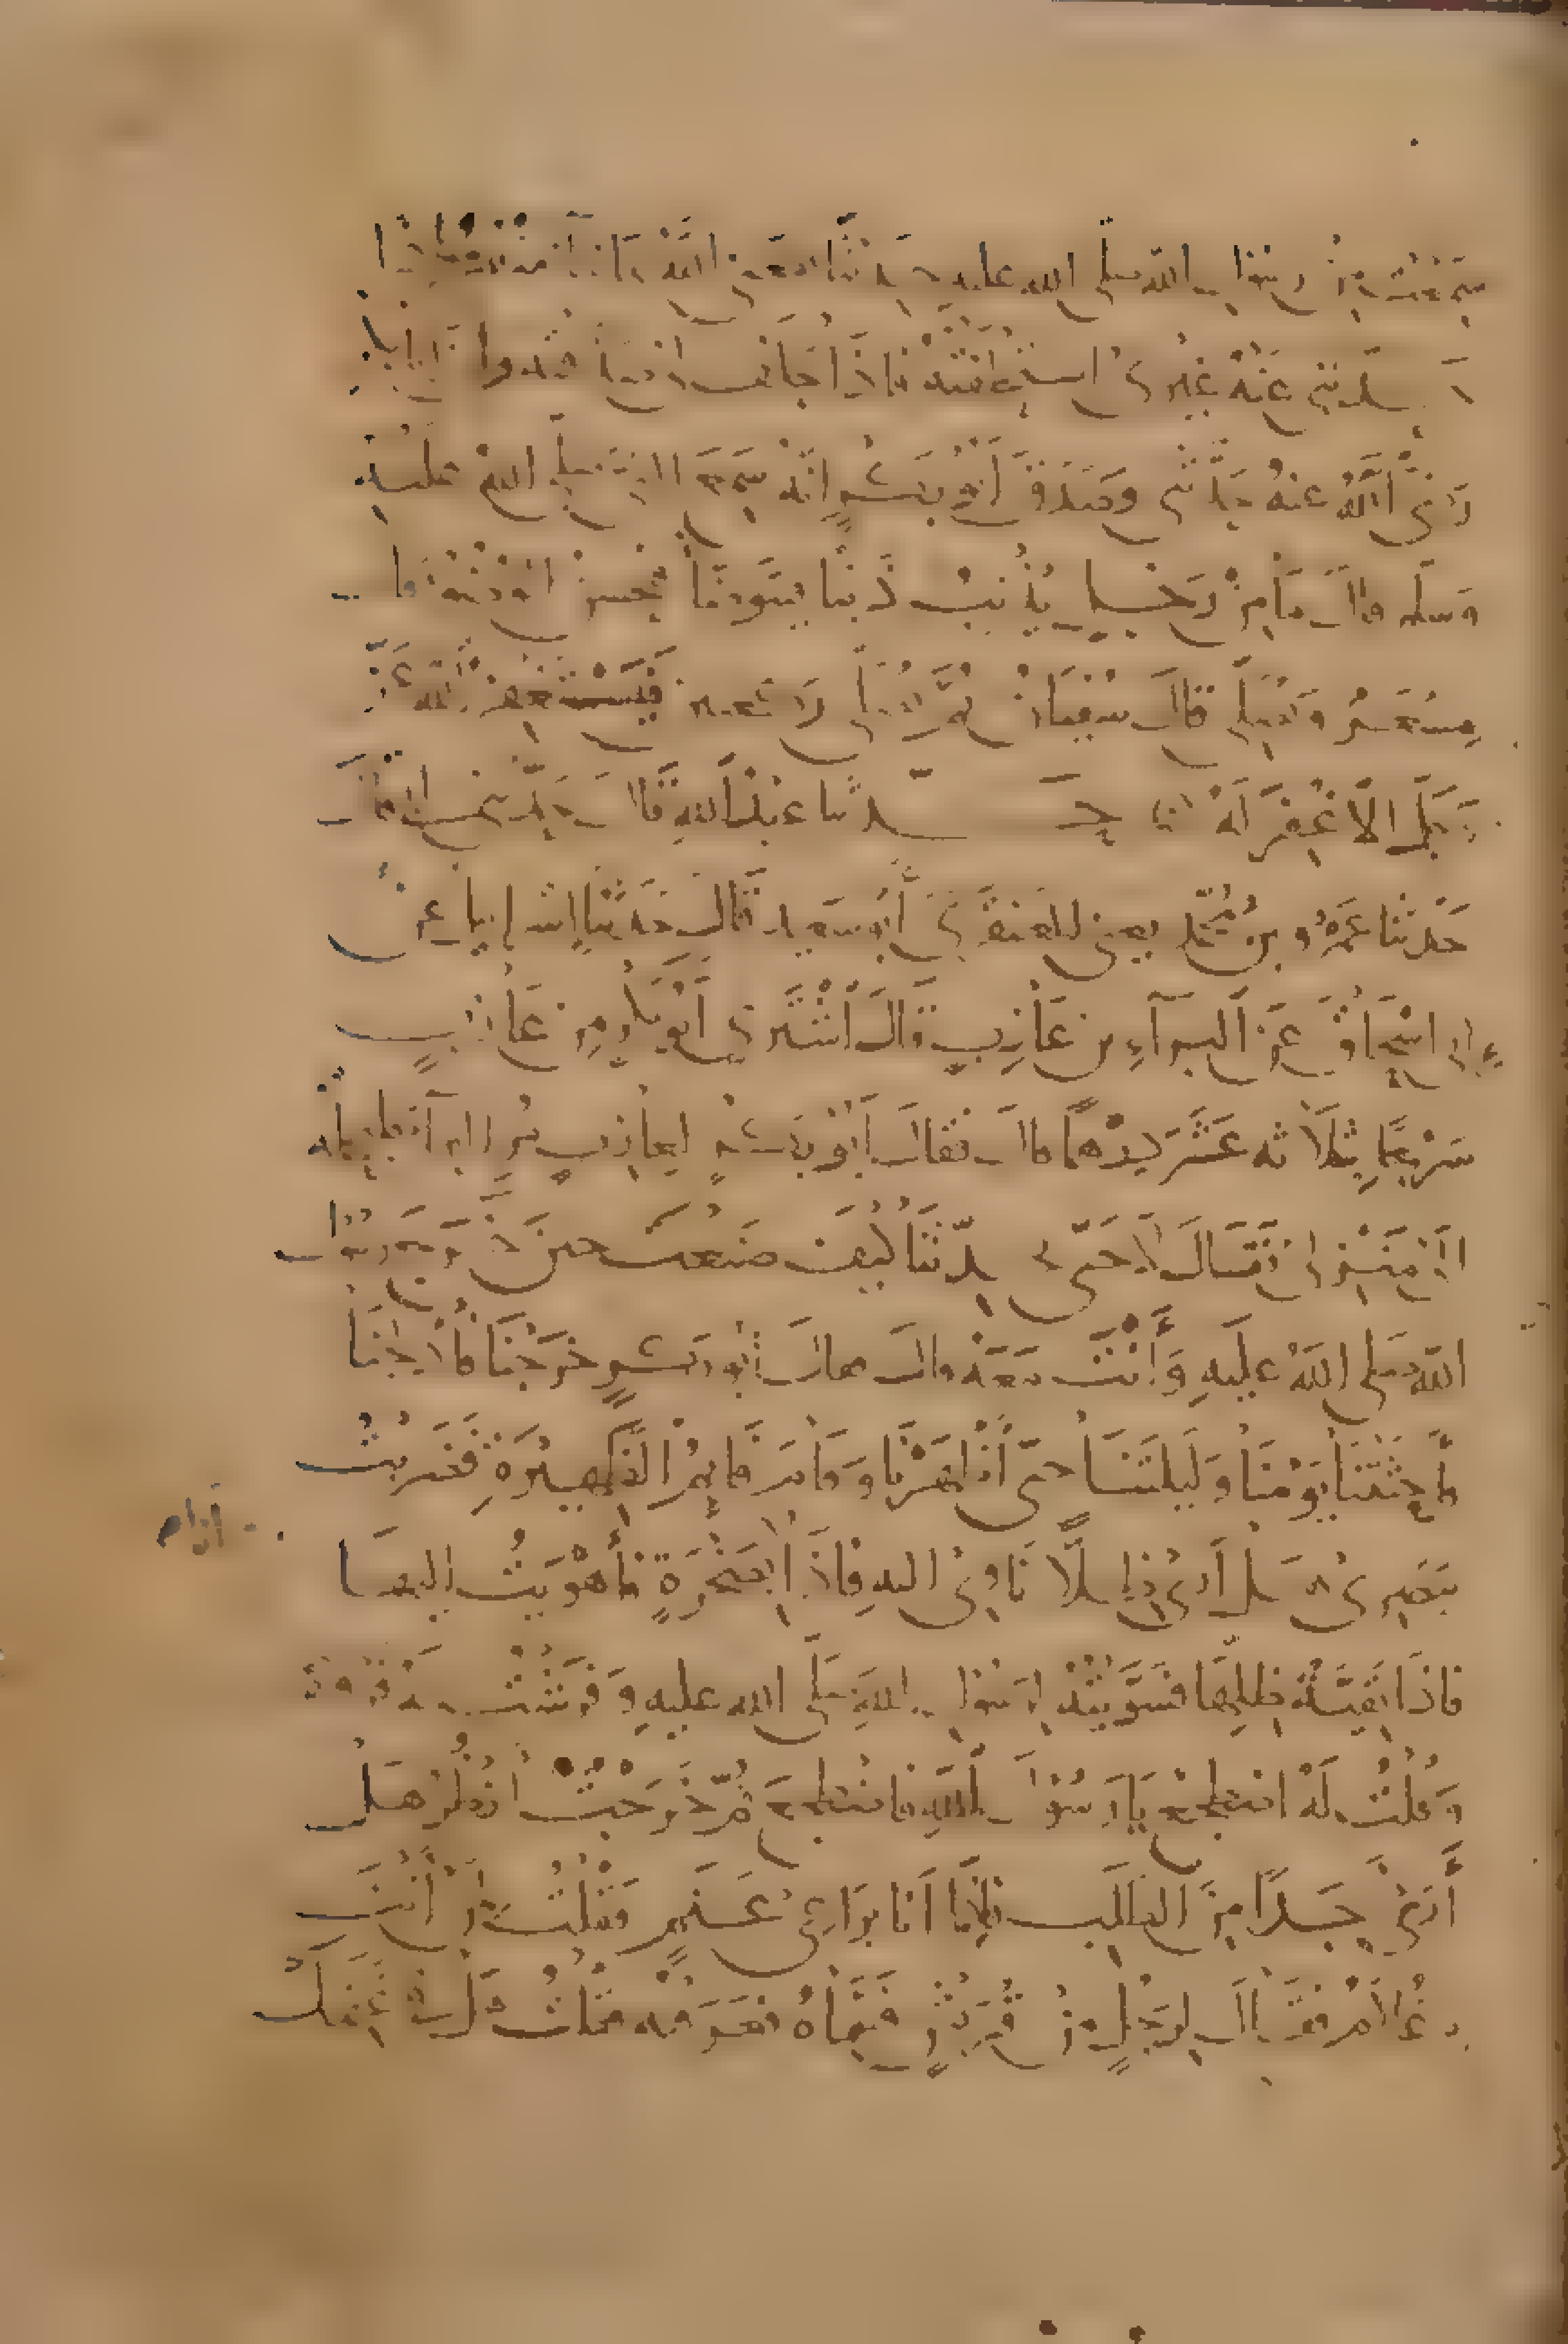 سَمِعْتُ مِنْ رسُول الله صلى الله عليه حديثا نفعني الله بما شاء منه وإذا
حدثني عنه غيري استحلفته فاذا حلف لي صدقته وان أبا بكر
رضي الله عنه حدثني وصدق أبو بكر انه سمع النبي صلى الله عليه
وسلم قال ما من رجل يذنب ذنبا فيتوضأ فيحسن الوضوء قال
مسعر ويصلي قال سفيان ثم يصلي ركعتين فيستغفر الله عز
وجل الا غفر له حدثنا عبد الله قال حدثني أبي قال
حدثنا عمرو بن محمد يعني العنقزي أبو سعيد قال حدثنا إسرائيل عن
أبي اسحاق عن البراء بن عازب قال اشترى أبو بكر من عازب
سرجا بثلاثه عشر درهما قال فقال أبو بكر لعازب مر البراء فليحمله
إلى منزلي فقال لا حتى تحدثنا كيف صنعت حين خرج رسول
الله صلى الله عليه وأنت معه قال فقال أبو بكر خرجنا فادلجنا
فأحثثنا يومنا وليلتنا حتى أظهرنا وقام قائم الظهيرة فضربت
ببصري هل أرى ظلا نأوي إليه فاذا أنا بصخرة فأهويت إليها
فاذا بقية ظلها فسويته لرسول الله صلى الله عليه وفرشت له فروة
وقلت له اضطجع يا رسول الله فاضطجع ثم خرجت أنظر هل
أرى أحدا من الطلب فإذا أنا براعي غنم فقلت لمن أنت
يا غلام فقال لرجل من قريش فسماه فعرفته فقلت هل في غنمك